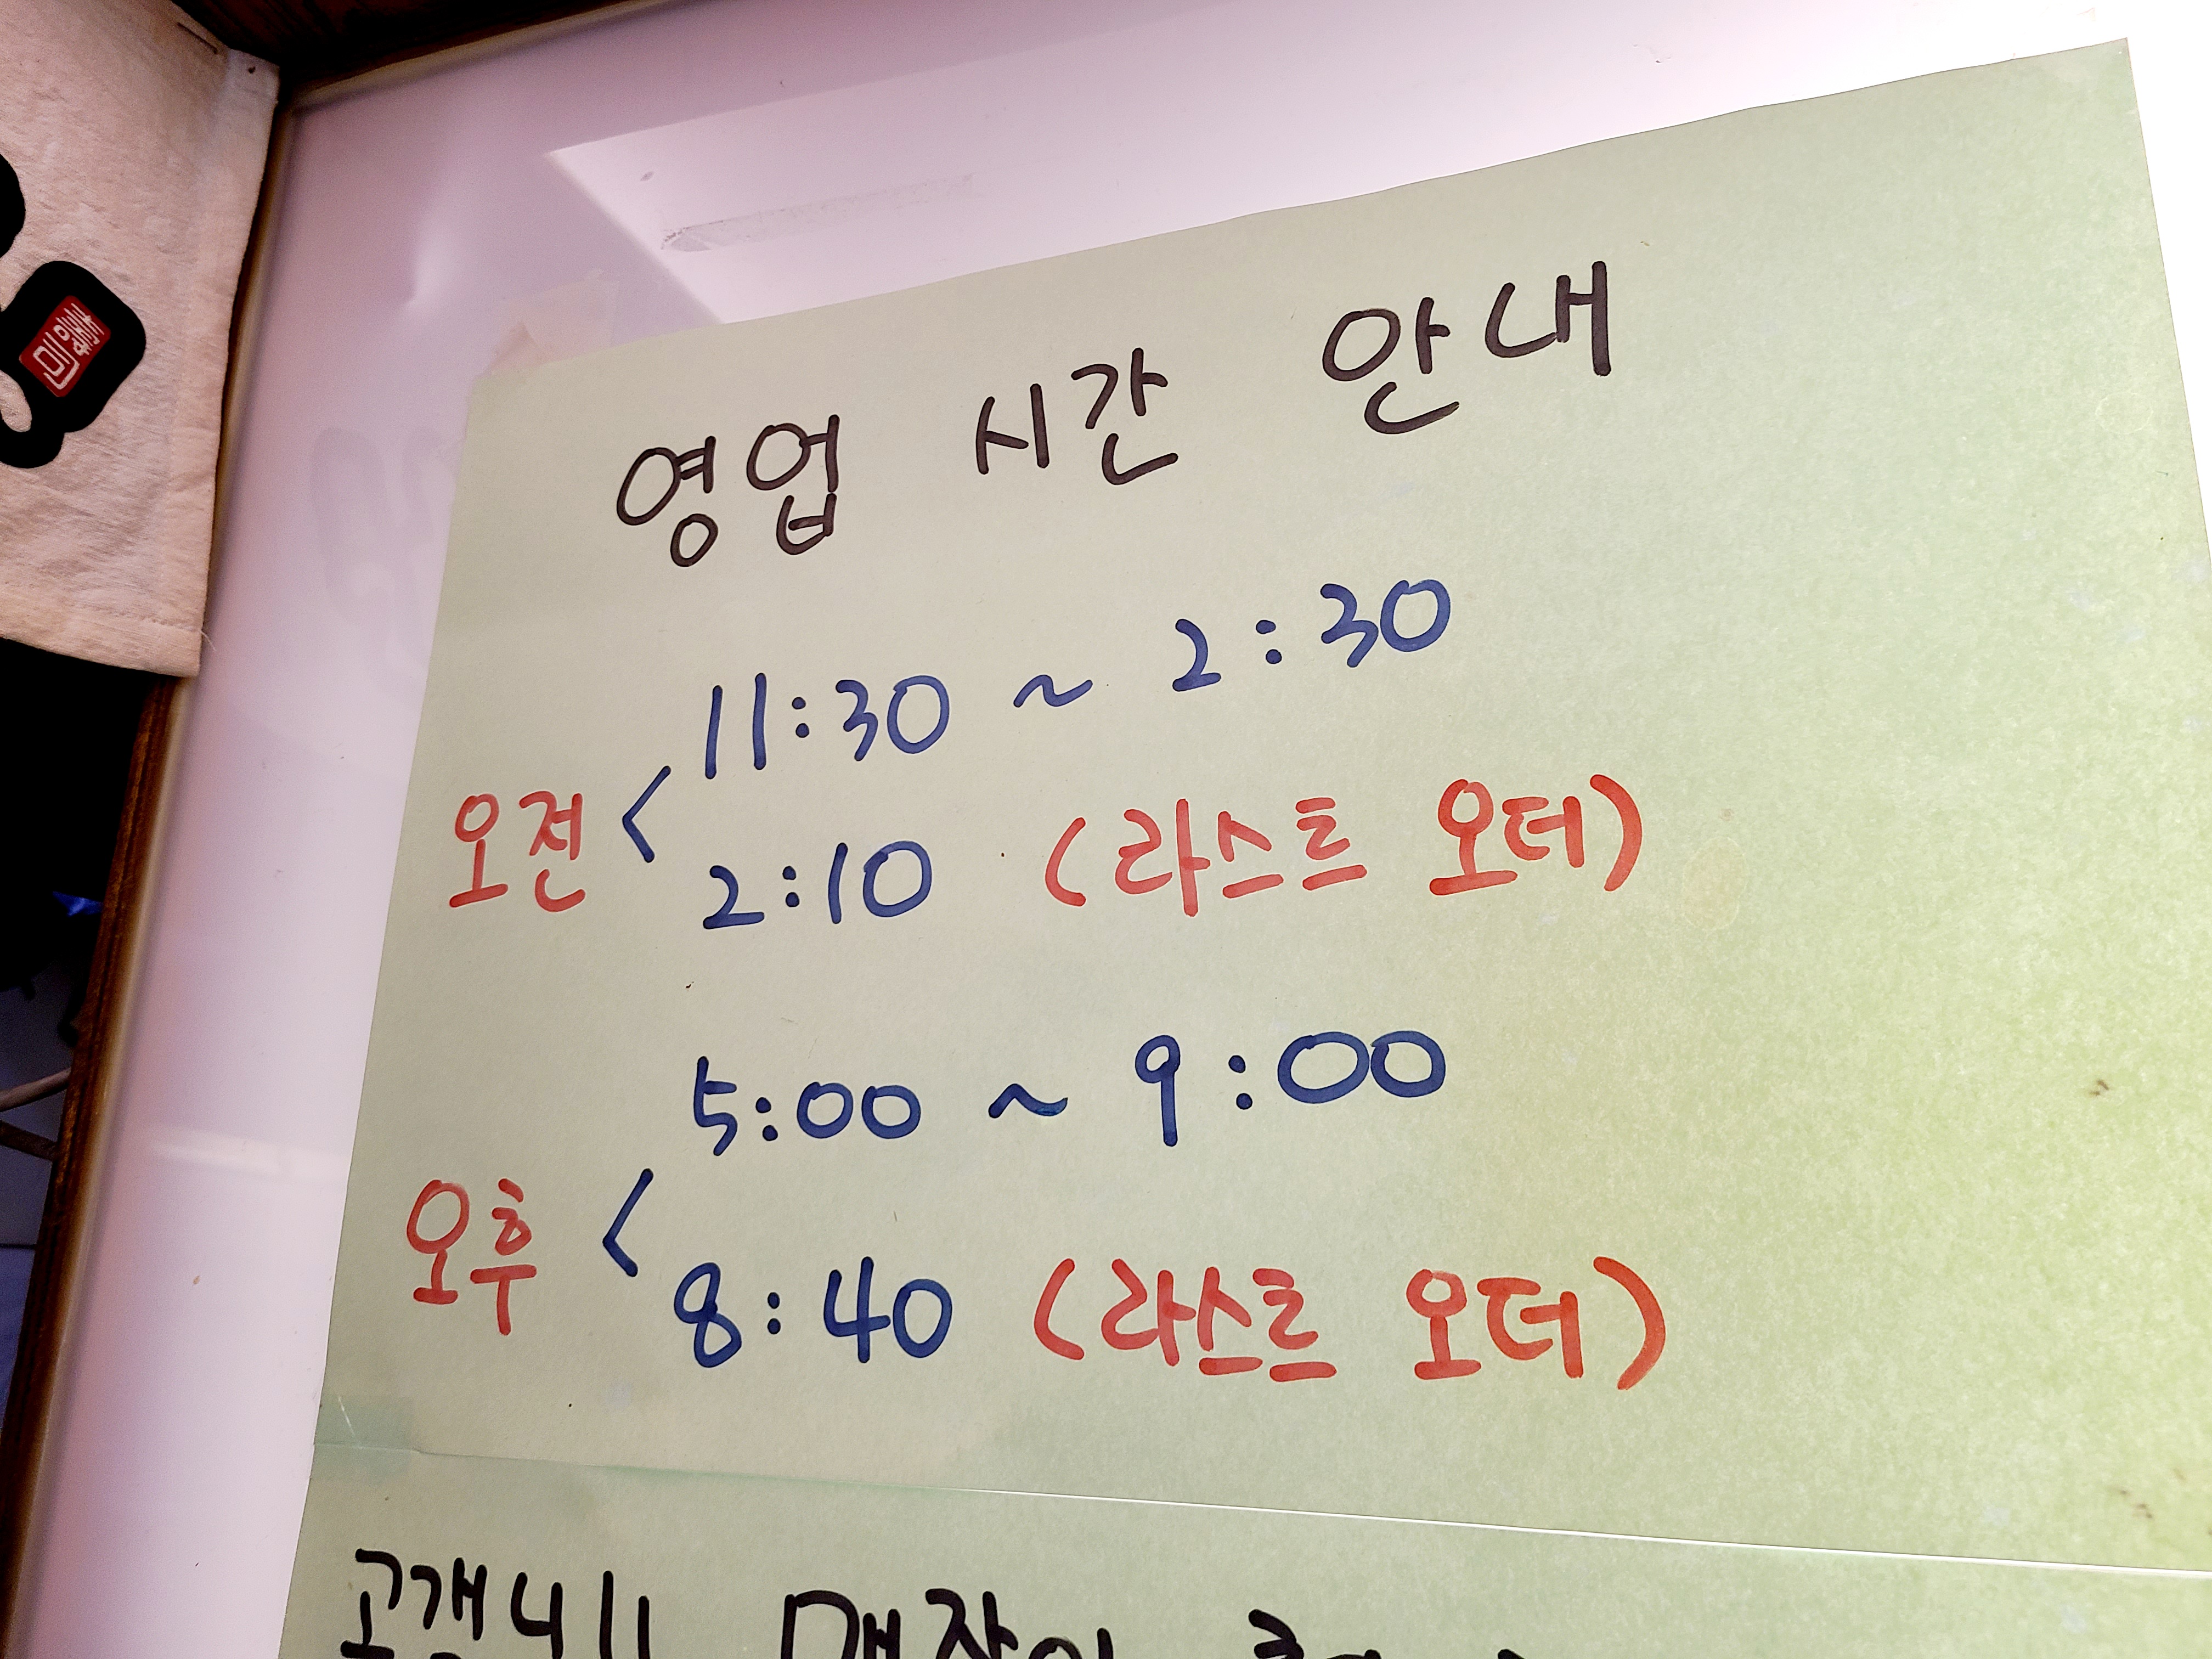 영업 시간 안내
11:30 ~ 2:30
오전 <
2:10 (라스트 오더)
5:00 ~ 9:00
오후 <
8:40 (라스트 오더)